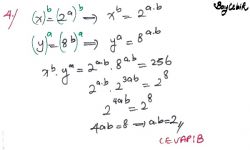 BayÇebik
4/ (x)^b = (2^a)^b ⇒ x^b = 2^{a·b}
(y)^a = (8^b)^a ⇒ y^a = 8^{a·b}
x^b · y^a = 2^{a·b} · 8^{a·b} = 256
2^{a·b} · 2^{3ab} = 2^8
2^{4ab} = 2^8
4ab = 8 ⇒ ab = 2 //
CEVAP B